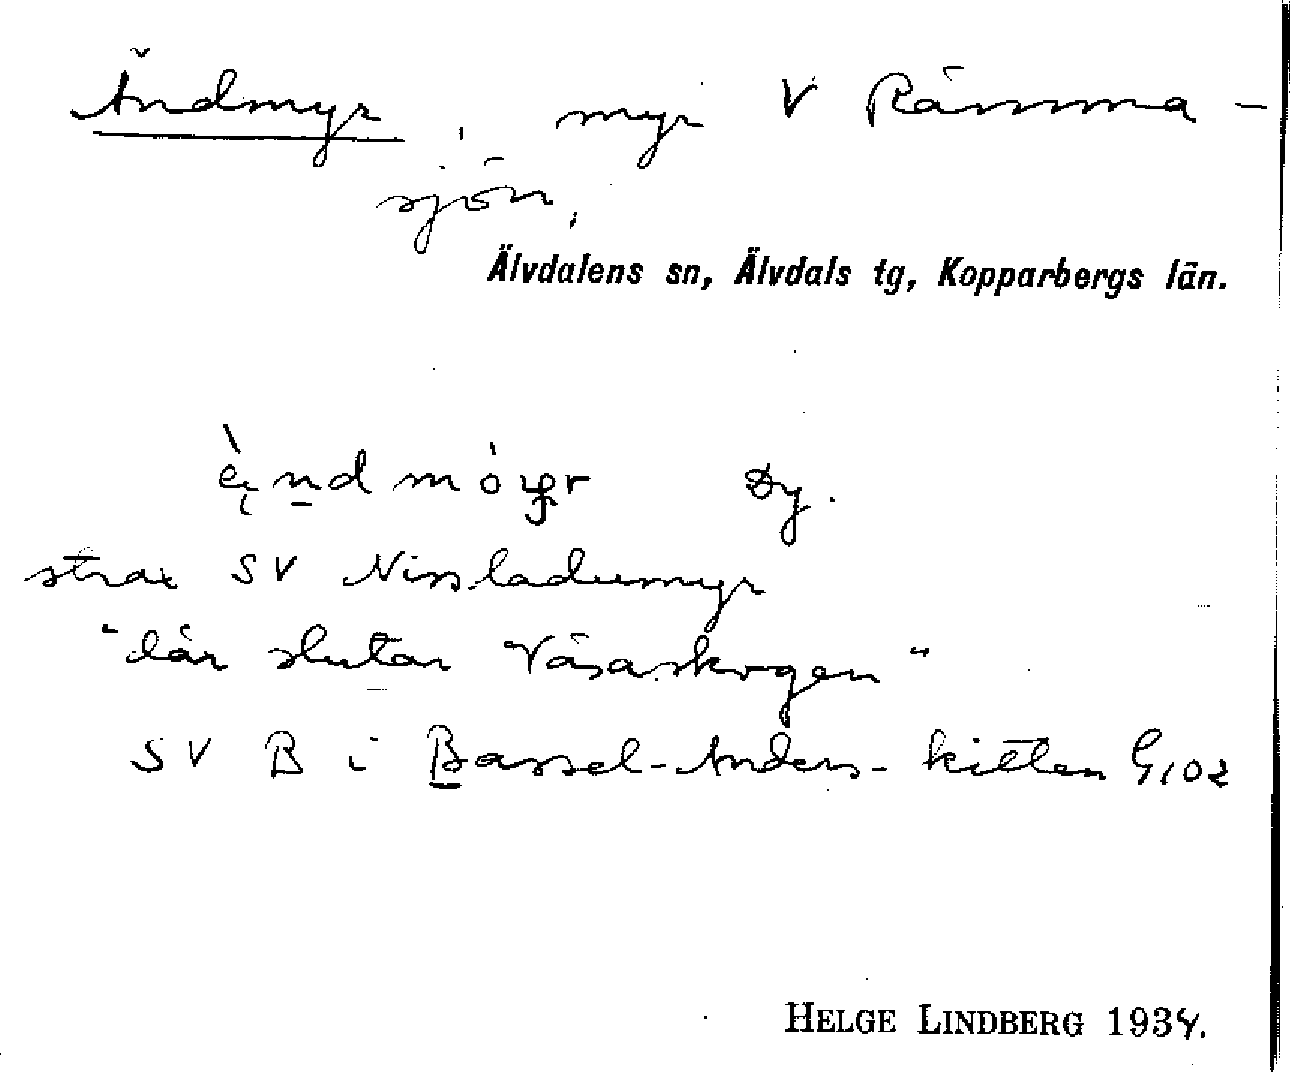 Ändmyr, myr V Rämma-
sjön,
Älvdalens sn, Älvdals tg, Kopparbergs län.
Dy.
strax SV Nissladumyr
"där slutar Våsaskogen"
SV B i Bassel-Anders-kitten G102
HELGE LINDBERG 1934.